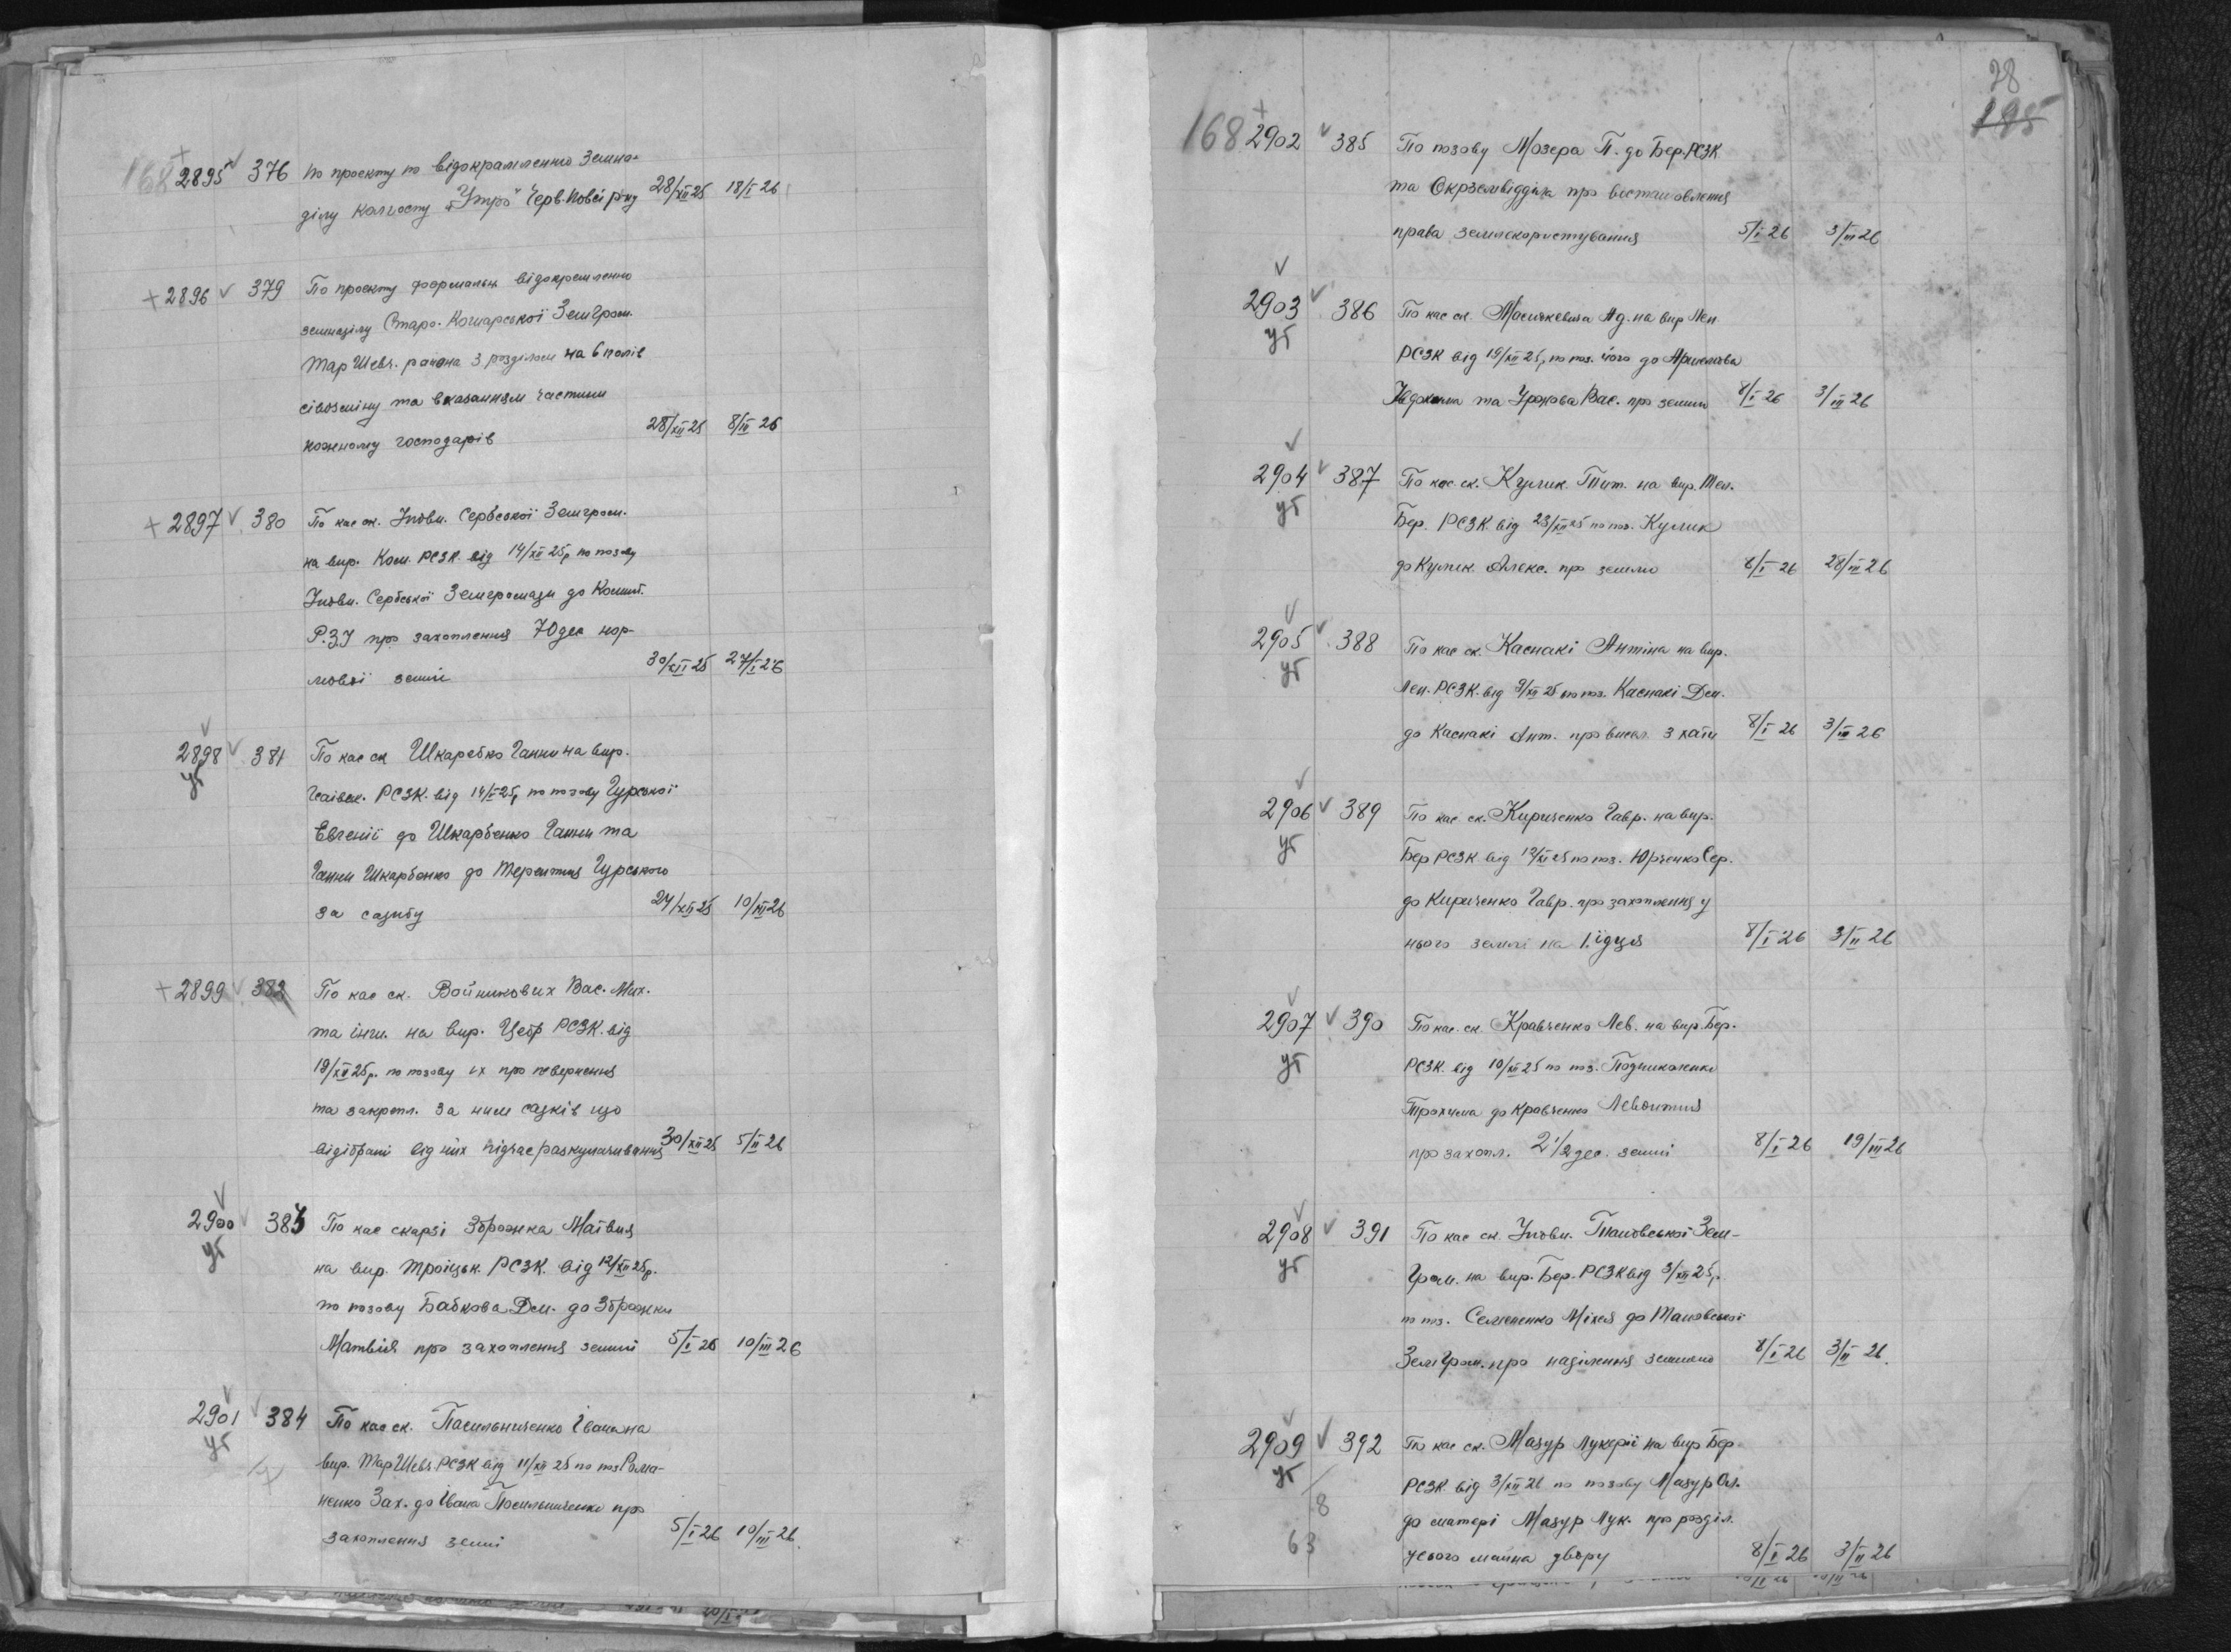 168 2895 376 по проекту по відокрамленню земна-
ділу колгоспу „Утро" Черв. Повст р-ну 28/XII 25 18/I 26
2896 379 По проекту формальн відокремленню
земнаділу Старо-Кошарської Земгром.
Тар Шевч. района з розділом на 6 полів
сівозміну та вказанням частини
кожному господарів 28/XII 25 8/III 26
2897 380 По кас ск. Уповн. Сербської Земгром.
на вир. Ком. РСЗК. від 14/XII 25р по позову
Уповн. Сербської Земгромади до Комінт.
Р.З.У про захоплення 70 дес нор-
мової землі 30/XII 25 27/I 26
2898 381 По кас ск Шкаребко Ганни на вир.
РСЗК. від 14/X 25р по позову Гурської
Евгенії до Шкарбенко Ганни та
Ганни Шкарбенко до Терентия Гурського
за садибу 24/XII 25 10/III 26
2899 382 По кас ск. Войникових Вас. Мих.
та інш. на вир. Цебр РСЗК. від
19/XII 25р. по позову їх про повернення
та закрепл. за ним садків що
відібрані від них підчас раскулачивання 30/XII 25 5/II 26
2900 383 По кас скарзі Зброжка Матвия
ут на вир. Троіцьк. РСЗК. від 12/XII 25р.
по позову Бабкова Дем. до Зброжки
Матвія про захоплення землі 5/I 26 10/III 26
2901 384 По кас ск. Пасильниченко Івана на
ут вир. Тар Шевч. РСЗК від 11/XII 25 по поз Рома-
ненко Зах. до Івана Посильниченко про
захоплення землі 5/I 26 10/III 26.
28
195
168 2902 385 По позову Мозера П. до Бер. РСЗК
та Окрземвідділа про востановлення
права землекористування 5/I 26 3/III 26
2903 386 По кас ск. Масишкевича Ад. на вир Лен
ут РСЗК від 15/XII 25р по поз. його до
та Урожова Вас. про землю 8/I 26 3/III 26
2904 387 По кас. ск. Кулик Тит. на вир. Тел.
ут Бер. РСЗК від 23/XII 25 по поз. Кулик
до Кулик Алекс. про землю 8/I 26 28/III 26
2905 388 По кас ск. Каспакі Антіна на вир.
ут Лен. РСЗК. від 9/XII 25 по поз. Каспакі Дем.
до Каспакі Ант. про висел. з хати 8/I 26 3/III 26
2906 389 По кас ск. Кириченко Гавр. на вир.
ут Бер РСЗК від 12/XI 25 по поз. Юрченко Сер.
до Кириченко Гавр. про захоплення у
нього землі на 1 їдця 8/I 26 3/II 26
2907 390 По кас. ск. Кравченко Лев. на вир. Бер.
ут РСЗК. від 10/XII 25 по поз.
Трохима до Кравченко Левонтия
про захопл. 2 1/2 дес. землі 8/I 26 19/III 26
2908 391 По кас ск. Уповн. Тановської Зем-
ут Гром. на вир. Бер. РСЗК від 3/XII 25р.
по поз. Семененко Міхея до Тановської
Зем Гром. про наділення землею 8/I 26 3/II 26.
2909 392 По кас ск. Мазур Лукерії на вир Бер
ут РСЗК від 3/XII 26 по позову Мазур Ол.
8 до матері Мазур Лук. про розділ.
63 усього майна двору 8/I 26 3/II 26